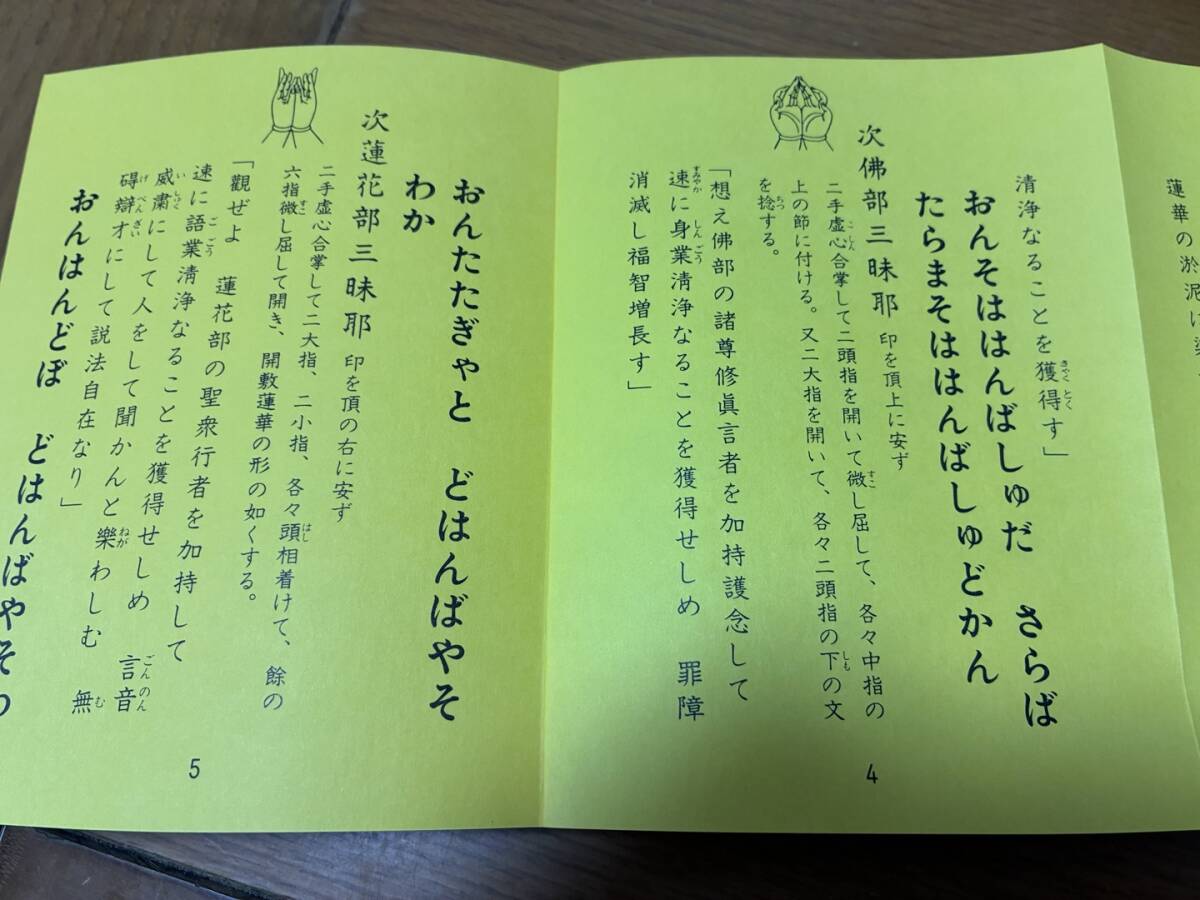 蓮華の淤泥に染
清浄なることを獲得す」
おんそははんばしゅだ さらば
たらまそははんばしゅどかん
次佛部三昧耶 印を頂上に安ず
二手虚心合掌して二頭指を開いて微し屈して、各々中指の
上の節に付ける。又二大指を開いて、各々二頭指の下の文
を捻する。
「想え佛部の諸尊修眞言者を加持護念して
速に身業清浄なることを獲得せしめ 罪障
消滅し福智増長す」
4
おんたたぎゃと どはんばやそ
わか
次蓮花部三昧耶 印を頂の右に安ず
二手虚心合掌して二大指、二小指、各々頭相着けて、餘の
六指微し屈して開き、開敷蓮華の形の如くする。
「觀ぜよ 蓮花部の聖衆行者を加持して
速に語業清浄なることを獲得せしめ 言音
威肅にして人をして聞かんと樂わしむ 無
碍辯才にして説法自在なり」
おんはんどぼ どはんばやそわ
5